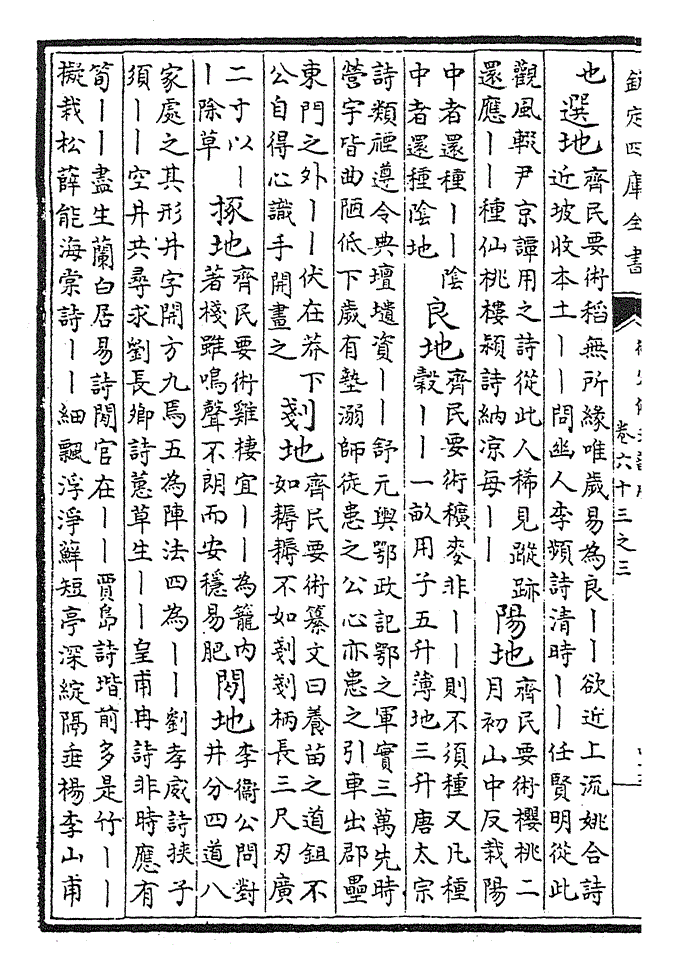 欽定四庫全書
卷六十三之三
也選地齊民要術稻無所緣唯歲易為良丨丨欲近上流姚合詩
近坡收本土丨丨問幽人李頻詩清時丨丨任賢明從此
觀風輙尹京譚用之詩從此人稀見蹤跡
還應丨丨種仙桃樓潁詩納凉每丨丨
陽地齊民要術櫻桃二
月初山中反栽陽
中者還種丨丨陰
中者還種陰地
良地齊民要術穬麥非丨丨則不須種又凡種
榖丨丨一畝用子五升薄地三升唐太宗
詩類禋遵令典壇壝資丨丨舒元輿鄂政記鄂之軍實三萬先時
營宇皆曲陋低下歲有墊溺師徒患之公心亦患之引車出郡壘
東門之外丨丨伏在莽下
公自得心識手開畫之
剗地齊民要術纂文曰養苗之道鉏不
如耨耨不如剗剗柄長三尺刃廣
二寸以丨
丨除草
㧻地齊民要術雞棲宜丨丨為籠内
著棧雖鳴聲不朗而安穩易肥
閒地李衛公問對
井分四道八
家處之其形井字開方九焉五為陣法四為丨丨劉孝威詩挾子
須丨丨空井共尋求劉長卿詩蕙草生丨丨皇甫冉詩非時應有
筍丨丨盡生蘭白居易詩閒官在丨丨賈島詩堦前多是竹丨丨
擬栽松薛能海棠詩丨丨細飄浮淨蘚短亭深綻隔垂楊李山甫